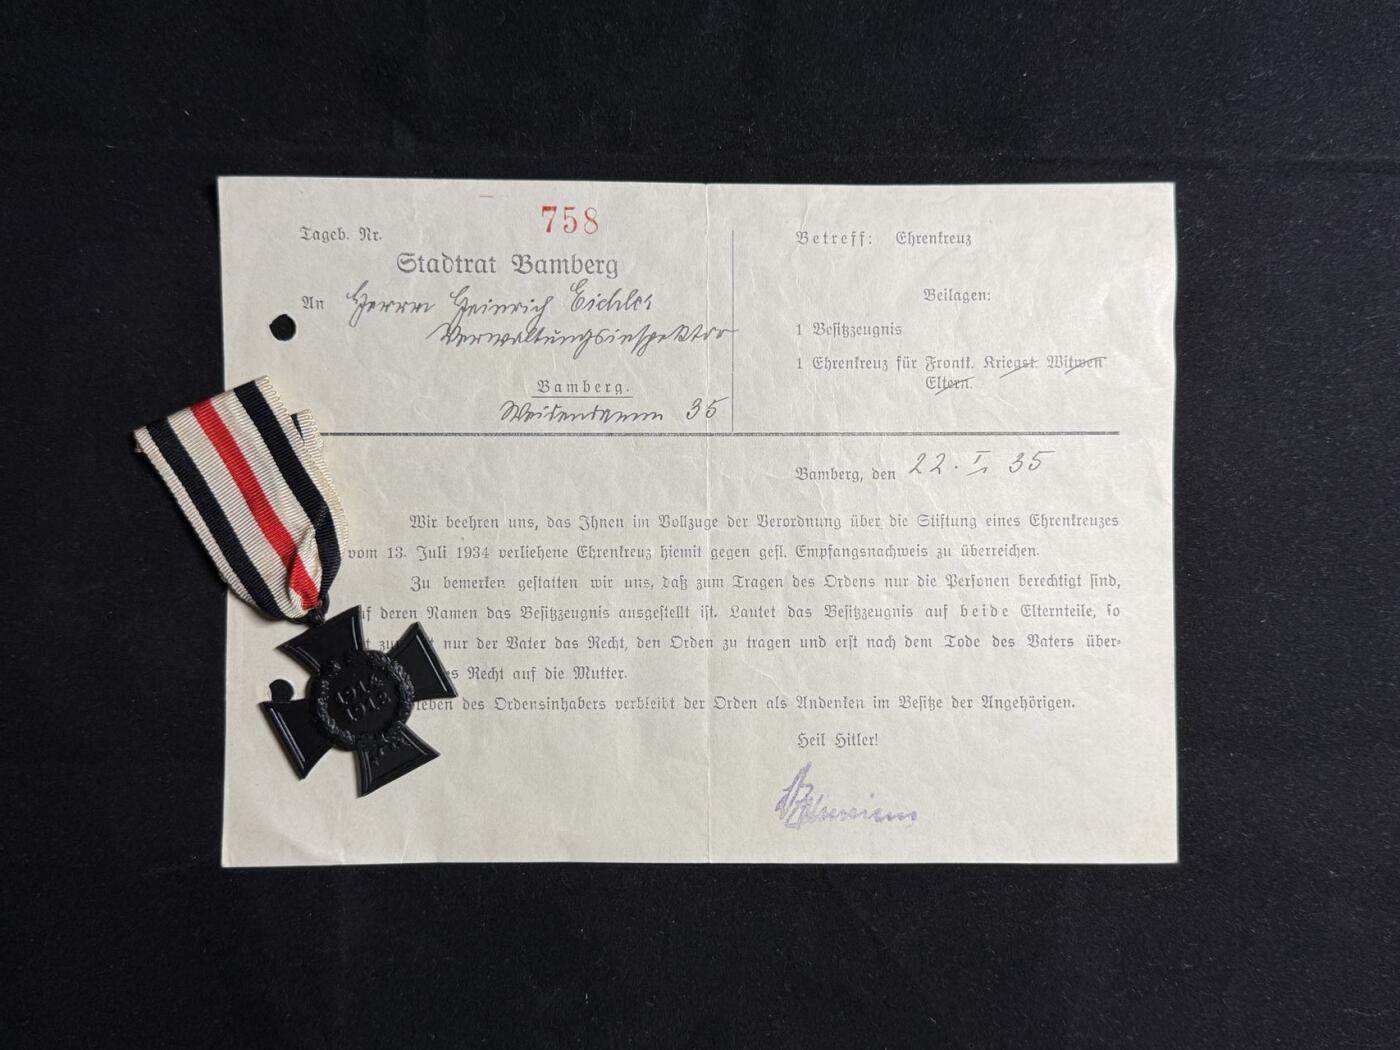 758
Tageb. Nr.
Stadtrat Bamberg
An Herrn Heinrich Eichler
Verwaltungsinspektor
Bamberg.
Weidendamm 35
Betreff: Ehrenkreuz
Beilagen:
1 Besitzzeugnis
1 Ehrenkreuz für Frontk. Kriegst. Witwen
Eltern.
Bamberg, den 22. I. 35
Wir beehren uns, das Ihnen im Vollzuge der Verordnung über die Stiftung eines Ehrenkreuzes
vom 13. Juli 1934 verliehene Ehrenkreuz hiemit gegen gefl. Empfangsnachweis zu überreichen.
Zu bemerken gestatten wir uns, daß zum Tragen des Ordens nur die Personen berechtigt sind,
deren Namen das Besitzzeugnis ausgestellt ist. Lautet das Besitzzeugnis auf beide Elternteile, so
nur der Vater das Recht, den Orden zu tragen und erst nach dem Tode des Vaters über-
Recht auf die Mutter.
des Ordensinhabers verbleibt der Orden als Andenken im Besitze der Angehörigen.
Heil Hitler!
1914
1918